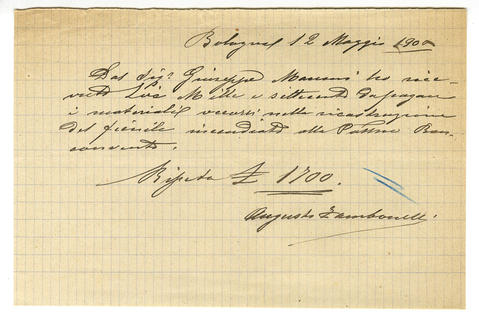 Bologna 12 Maggio 1900
Dal Sigr Giuseppe Mansani ho rice-
vuto Lire Mille e settecento da pagare
i materiali occorsi nella ricostruzione
del fienile incendiato alla Buon
convento.
Ripeto £ 1700.
Augusto Zambonelli